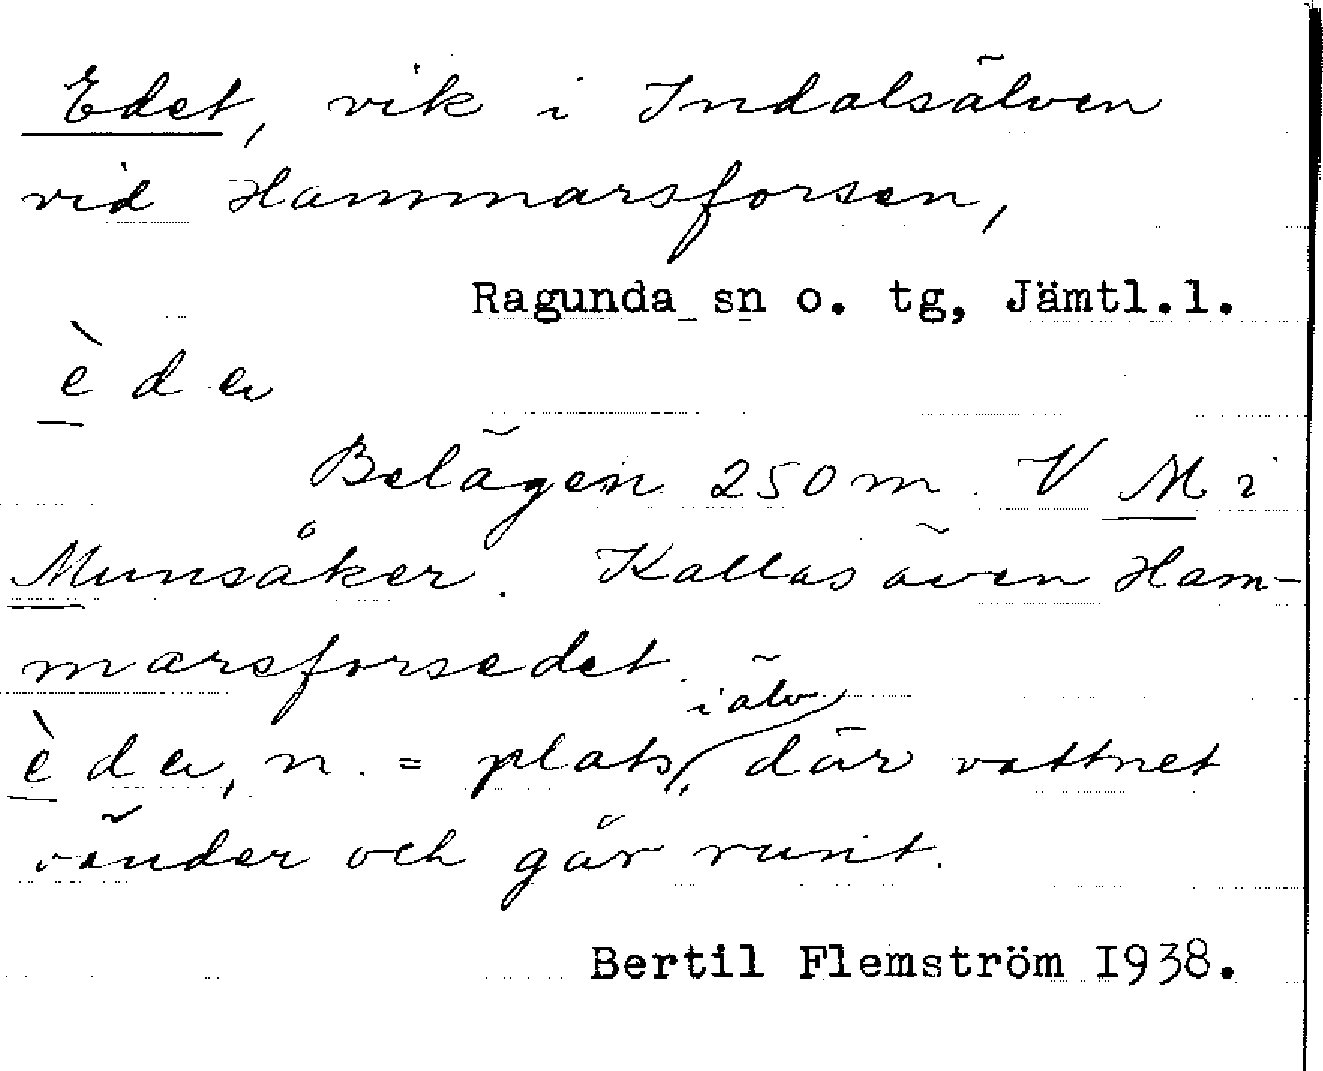 Edet, vik i Indalsälven
vid Hammarsforsen,
Ragunda sn o. tg, Jämtl.l.
èdeɩ
Belägen 250 m. V M i
Munsåker. Kallas även Ham-
marsforsedet.
èdeɩ, n. = plats i älv, där vattnet
vänder och går runt.
Bertil Flemström 1938.